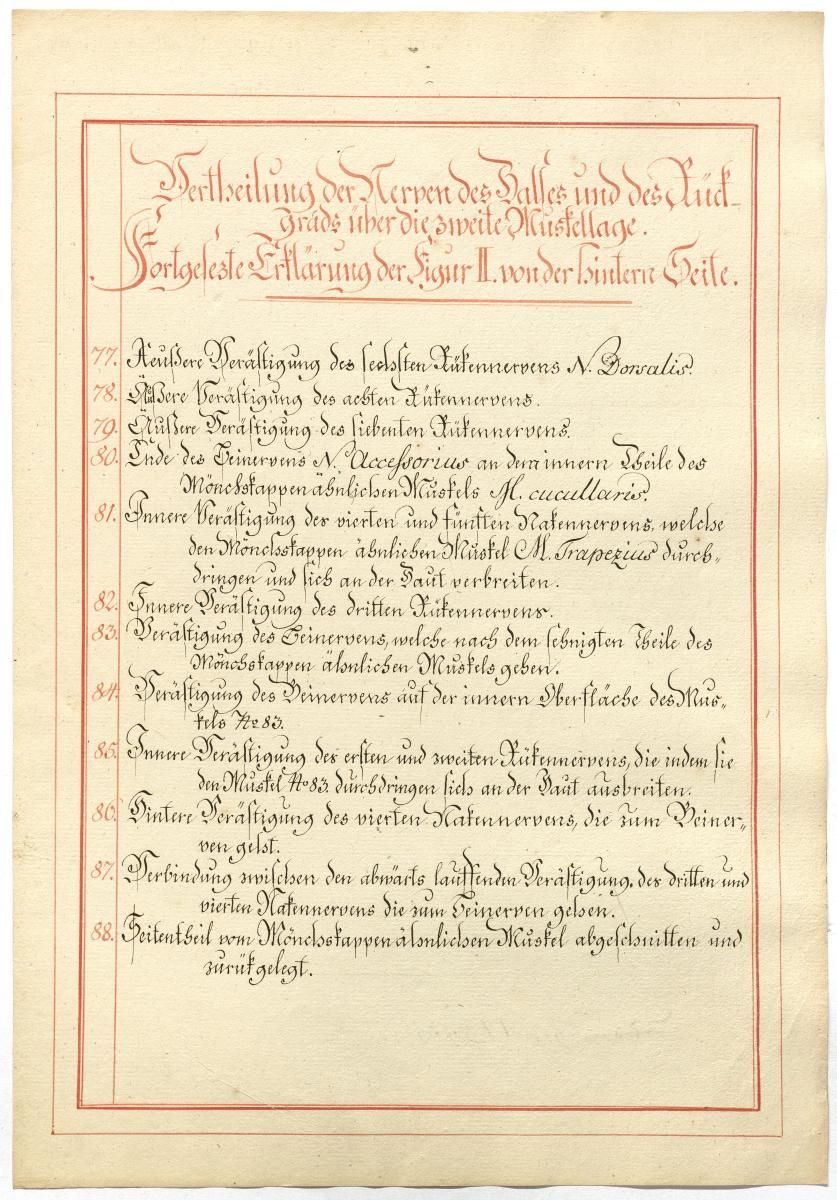 Vertheilung der Nerven des Halses und des Rück-
grads über die zweite Muskellage.
Fortgesezte Erklärung der Figur II. von der hintern Seite.
77. Aeußere Verästigung des sechsten Rükennervens N. Dorsalis.
78. Äußere Verästigung des achten Rükennervens.
79. Äußere Verästigung des siebenten Rükennervens.
80. Ende des Beinervens N. Accessorius an dem innern Theile des
Mönchskappen ähnlichen Muskels M. cucullaris.
81. Innere Verästigung des vierten und fünften Nakennervens, welche
den Mönchskappen ähnlichen Muskel M. Trapezius durch-
dringen und sich an der Haut verbreiten.
82. Innere Verästigung des dritten Rükennervens.
83. Verästigung des Beinervens, welche nach dem sehnigten Theile des
Mönchskappen ähnlichen Muskels gehen.
84. Verästigung des Beinervens auf der innern Oberfläche des Mus-
kels No 83.
85. Innere Verästigung des ersten und zweiten Rükennervens, die indem sie
den Muskel No 83. durchdringen sich an der Haut ausbreiten.
86. Hintere Verästigung des vierten Nakennervens, die zum Beiner-
ven geht.
87. Verbindung zwischen den abwärts lauffenden Verästigung. des dritten und
vierten Nakennervens die zum Beinerven gehen.
88. Seitentheil vom Mönchskappen ähnlichen Muskel abgeschnitten und
zurükgelegt.